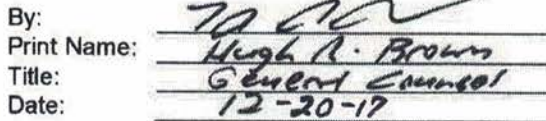 By:
Print Name: Hugh R. Brown
Title: General Counsel
Date: 12-20-17